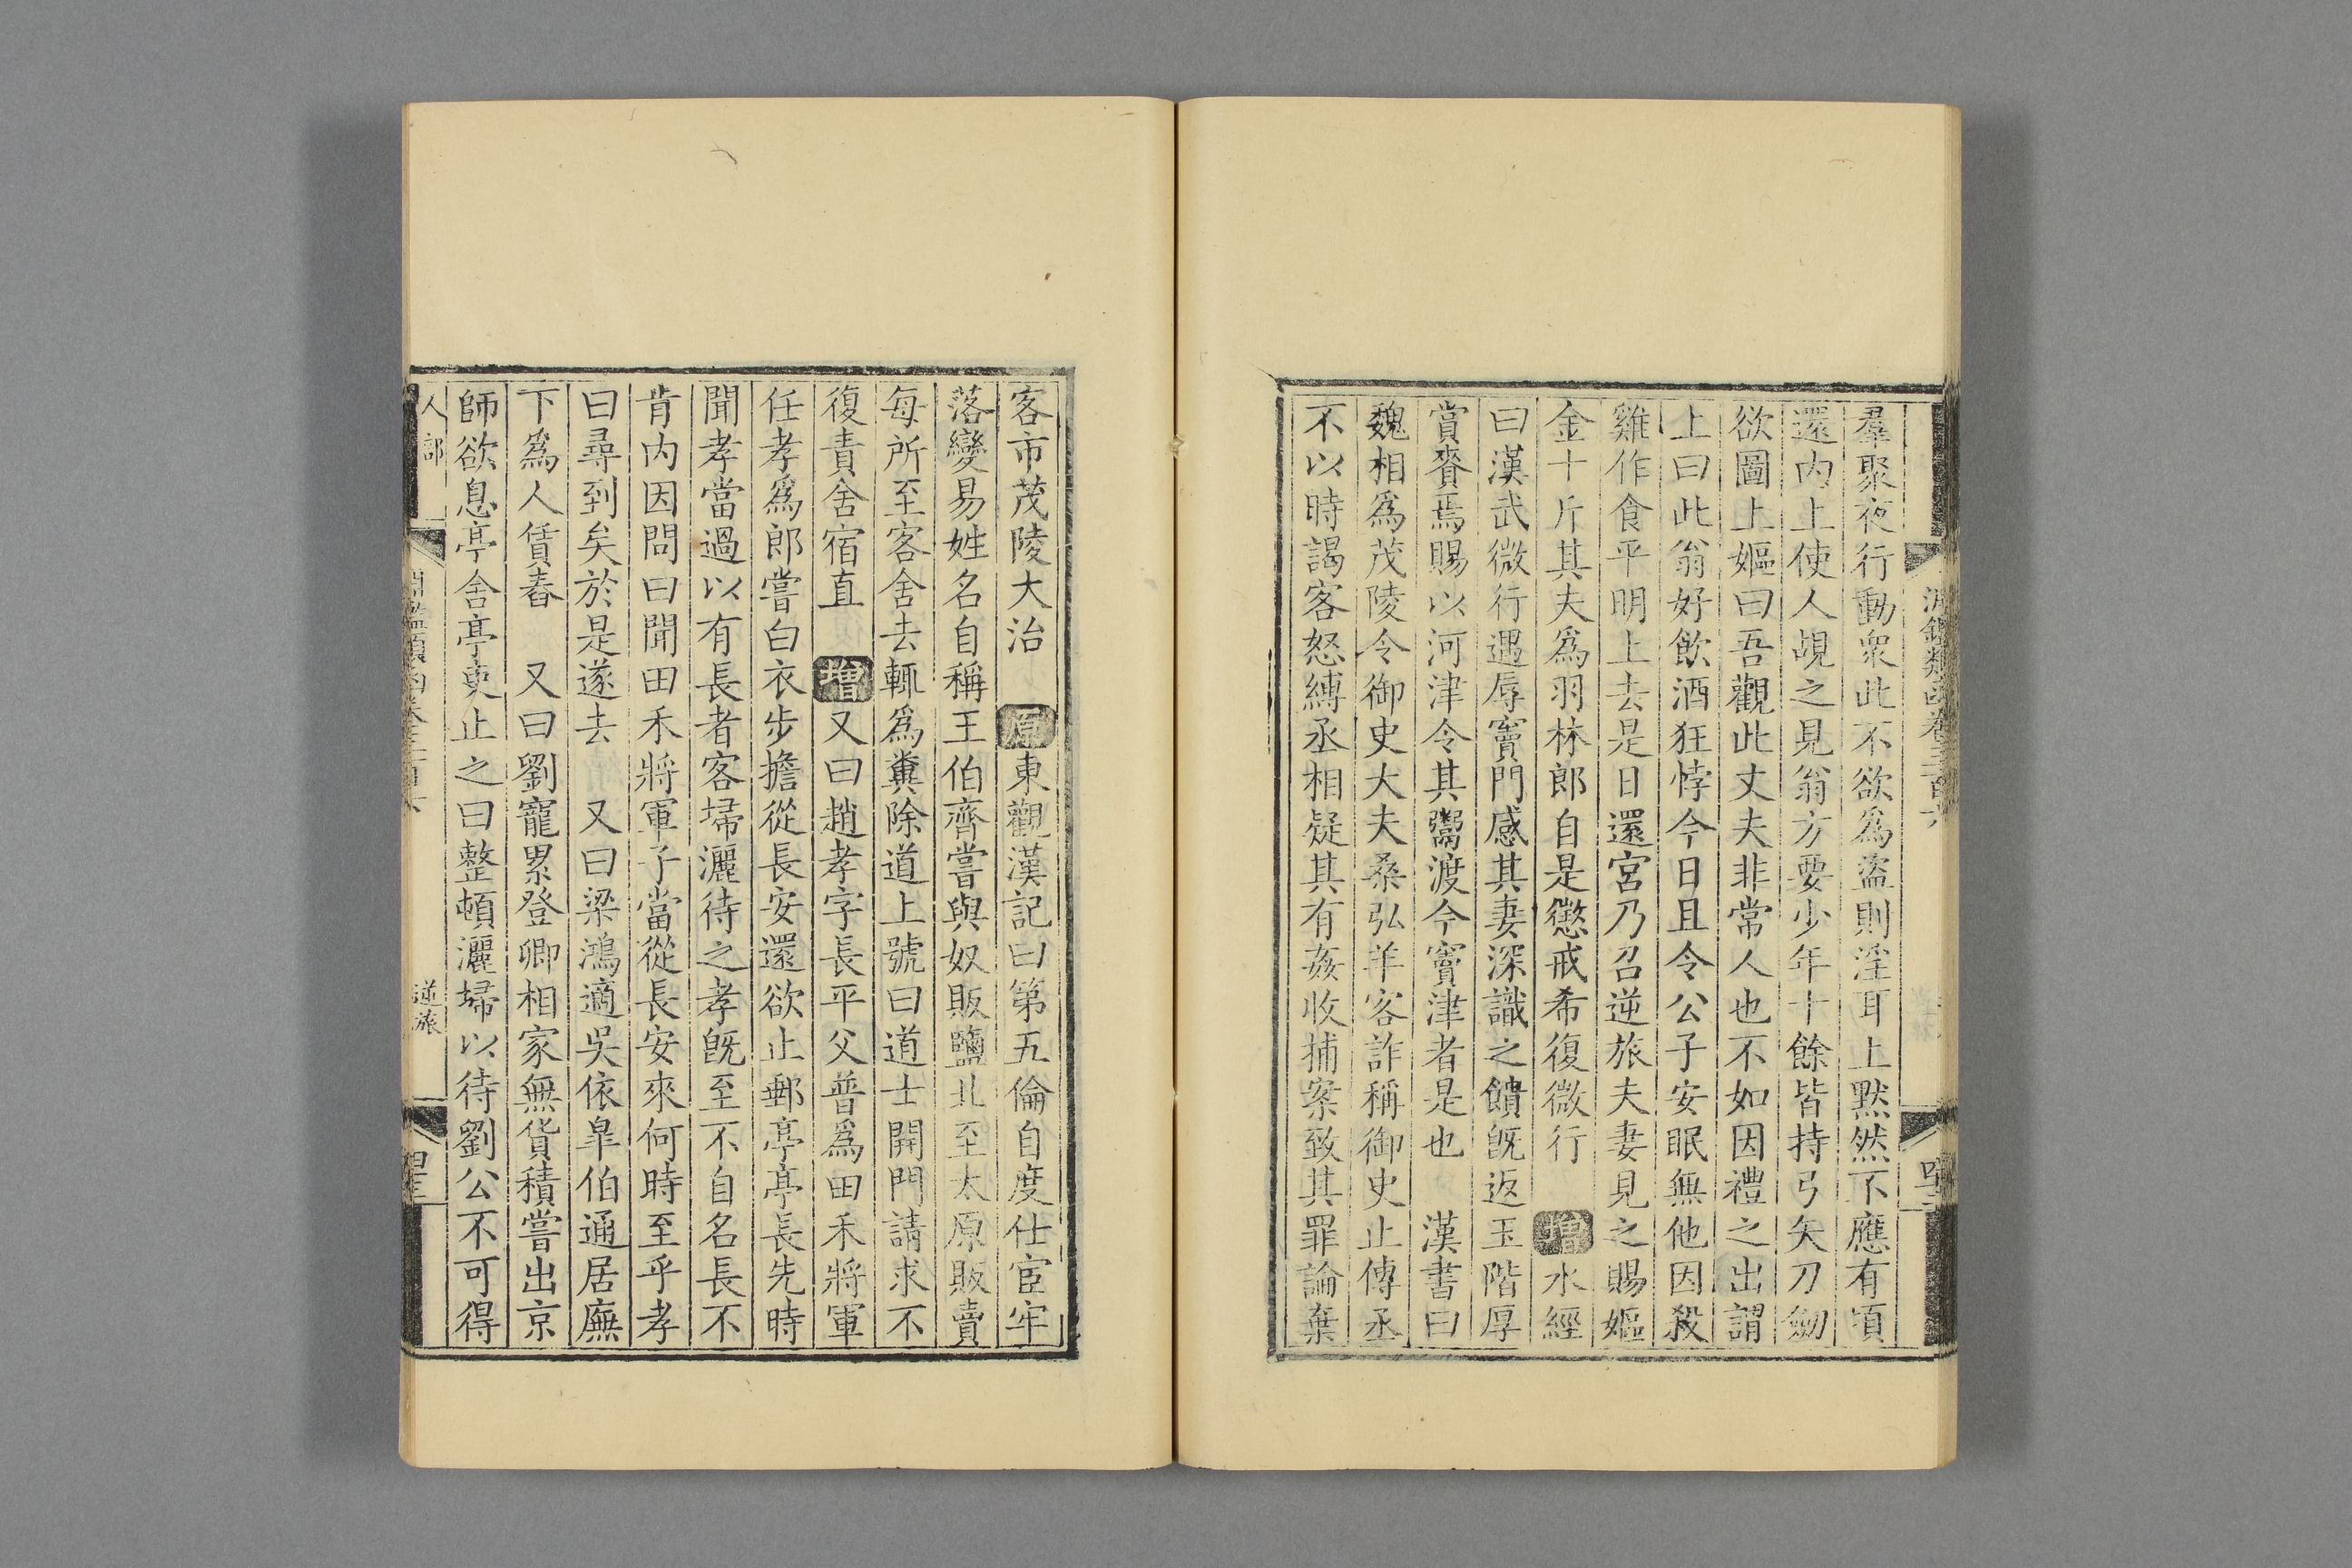 羣聚夜行動衆此不欲爲盜則淫耳上黙然不應有頃
還内上使人覘之見翁方要少年十餘皆持弓矢刀劒
欲圖上嫗曰吾觀此丈夫非常人也不如因禮之出謂
上曰此翁好飲酒狂悖今日且令公子安眠無他因殺
雞作食平明上去是日還宮乃召逆旅夫妻見之賜嫗
金十斤其夫爲羽林郎自是懲戒希復微行 增水經
曰漢武微行遇辱竇門感其妻深識之饋旣返玉階厚
賞賚焉賜以河津令其鬻渡今竇津者是也 漢書曰
魏相爲茂陵令御史大夫桑弘羊客詐稱御史止傳丞
不以時謁客怒縛丞相疑其有姦收捕案致其罪論棄
客市茂陵大治 原東觀漢記曰第五倫自度仕宦牢
落變易姓名自稱王伯齊嘗與奴販鹽北至太原販賣
每所至客舍去輒爲糞除道上號曰道士開門請求不
復責舍宿直 增又曰趙孝字長平父普爲田禾將軍
任孝爲郎嘗白衣步擔從長安還欲止郵亭亭長先時
聞孝當過以有長者客埽灑待之孝旣至不自名長不
肯内因問曰聞田禾將軍子當從長安來何時至乎孝
曰尋到矣於是遂去 又曰梁鴻適吳依臯伯通居廡
下爲人賃舂 又曰劉寵累登卿相家無貨積嘗出京
師欲息亭舍亭吏止之曰整頓灑埽以待劉公不可得
人部
逆旅